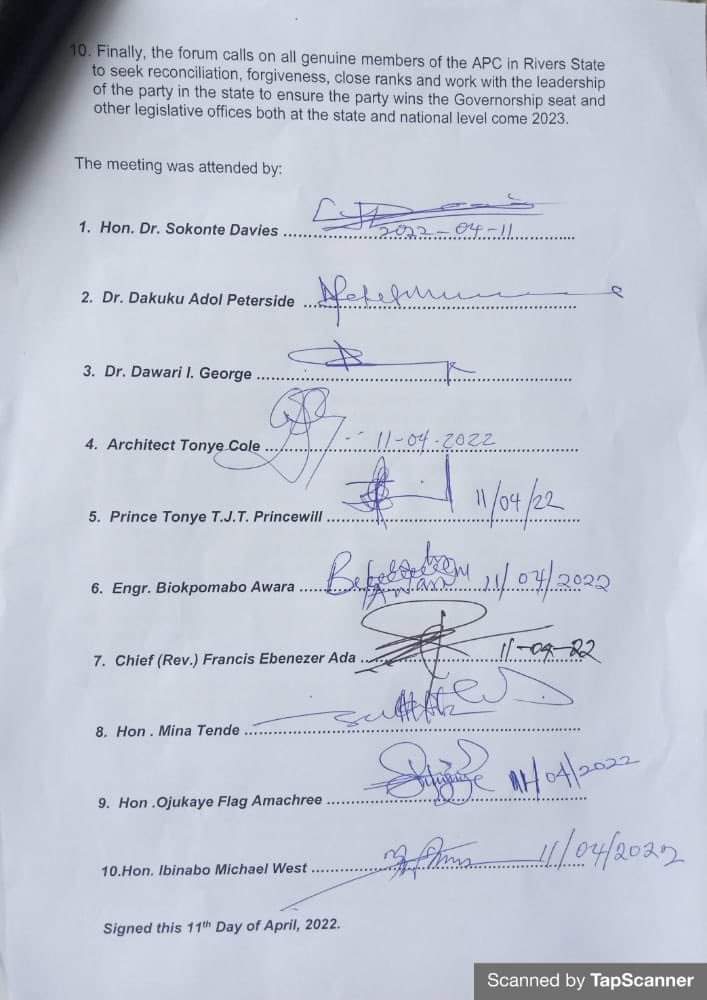 10. Finally, the forum calls on all genuine members of the APC in Rivers State
to seek reconciliation, forgiveness, close ranks and work with the leadership
of the party in the state to ensure the party wins the Governorship seat and
other legislative offices both at the state and national level come 2023.
The meeting was attended by:
1. Hon. Dr. Sokonte Davies ........ 2022-04-11
2. Dr. Dakuku Adol Peterside ........
3. Dr. Dawari I. George ........
4. Architect Tonye Cole ........ 11-04-2022
5. Prince Tonye T.J.T. Princewill ........ 11/04/22
6. Engr. Biokpomabo Awara ........ 11/04/2022
7. Chief (Rev.) Francis Ebenezer Ada ........ 11-04-22
8. Hon . Mina Tende ........
9. Hon .Ojukaye Flag Amachree ........ 11/04/2022
10.Hon. Ibinabo Michael West ........ 11/04/2022
Signed this 11th Day of April, 2022.
Scanned by TapScanner